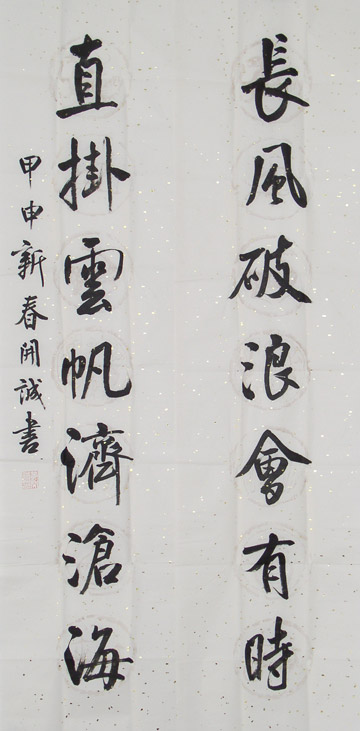 長風破浪會有時
直掛雲帆濟滄海
甲申新春開誠書